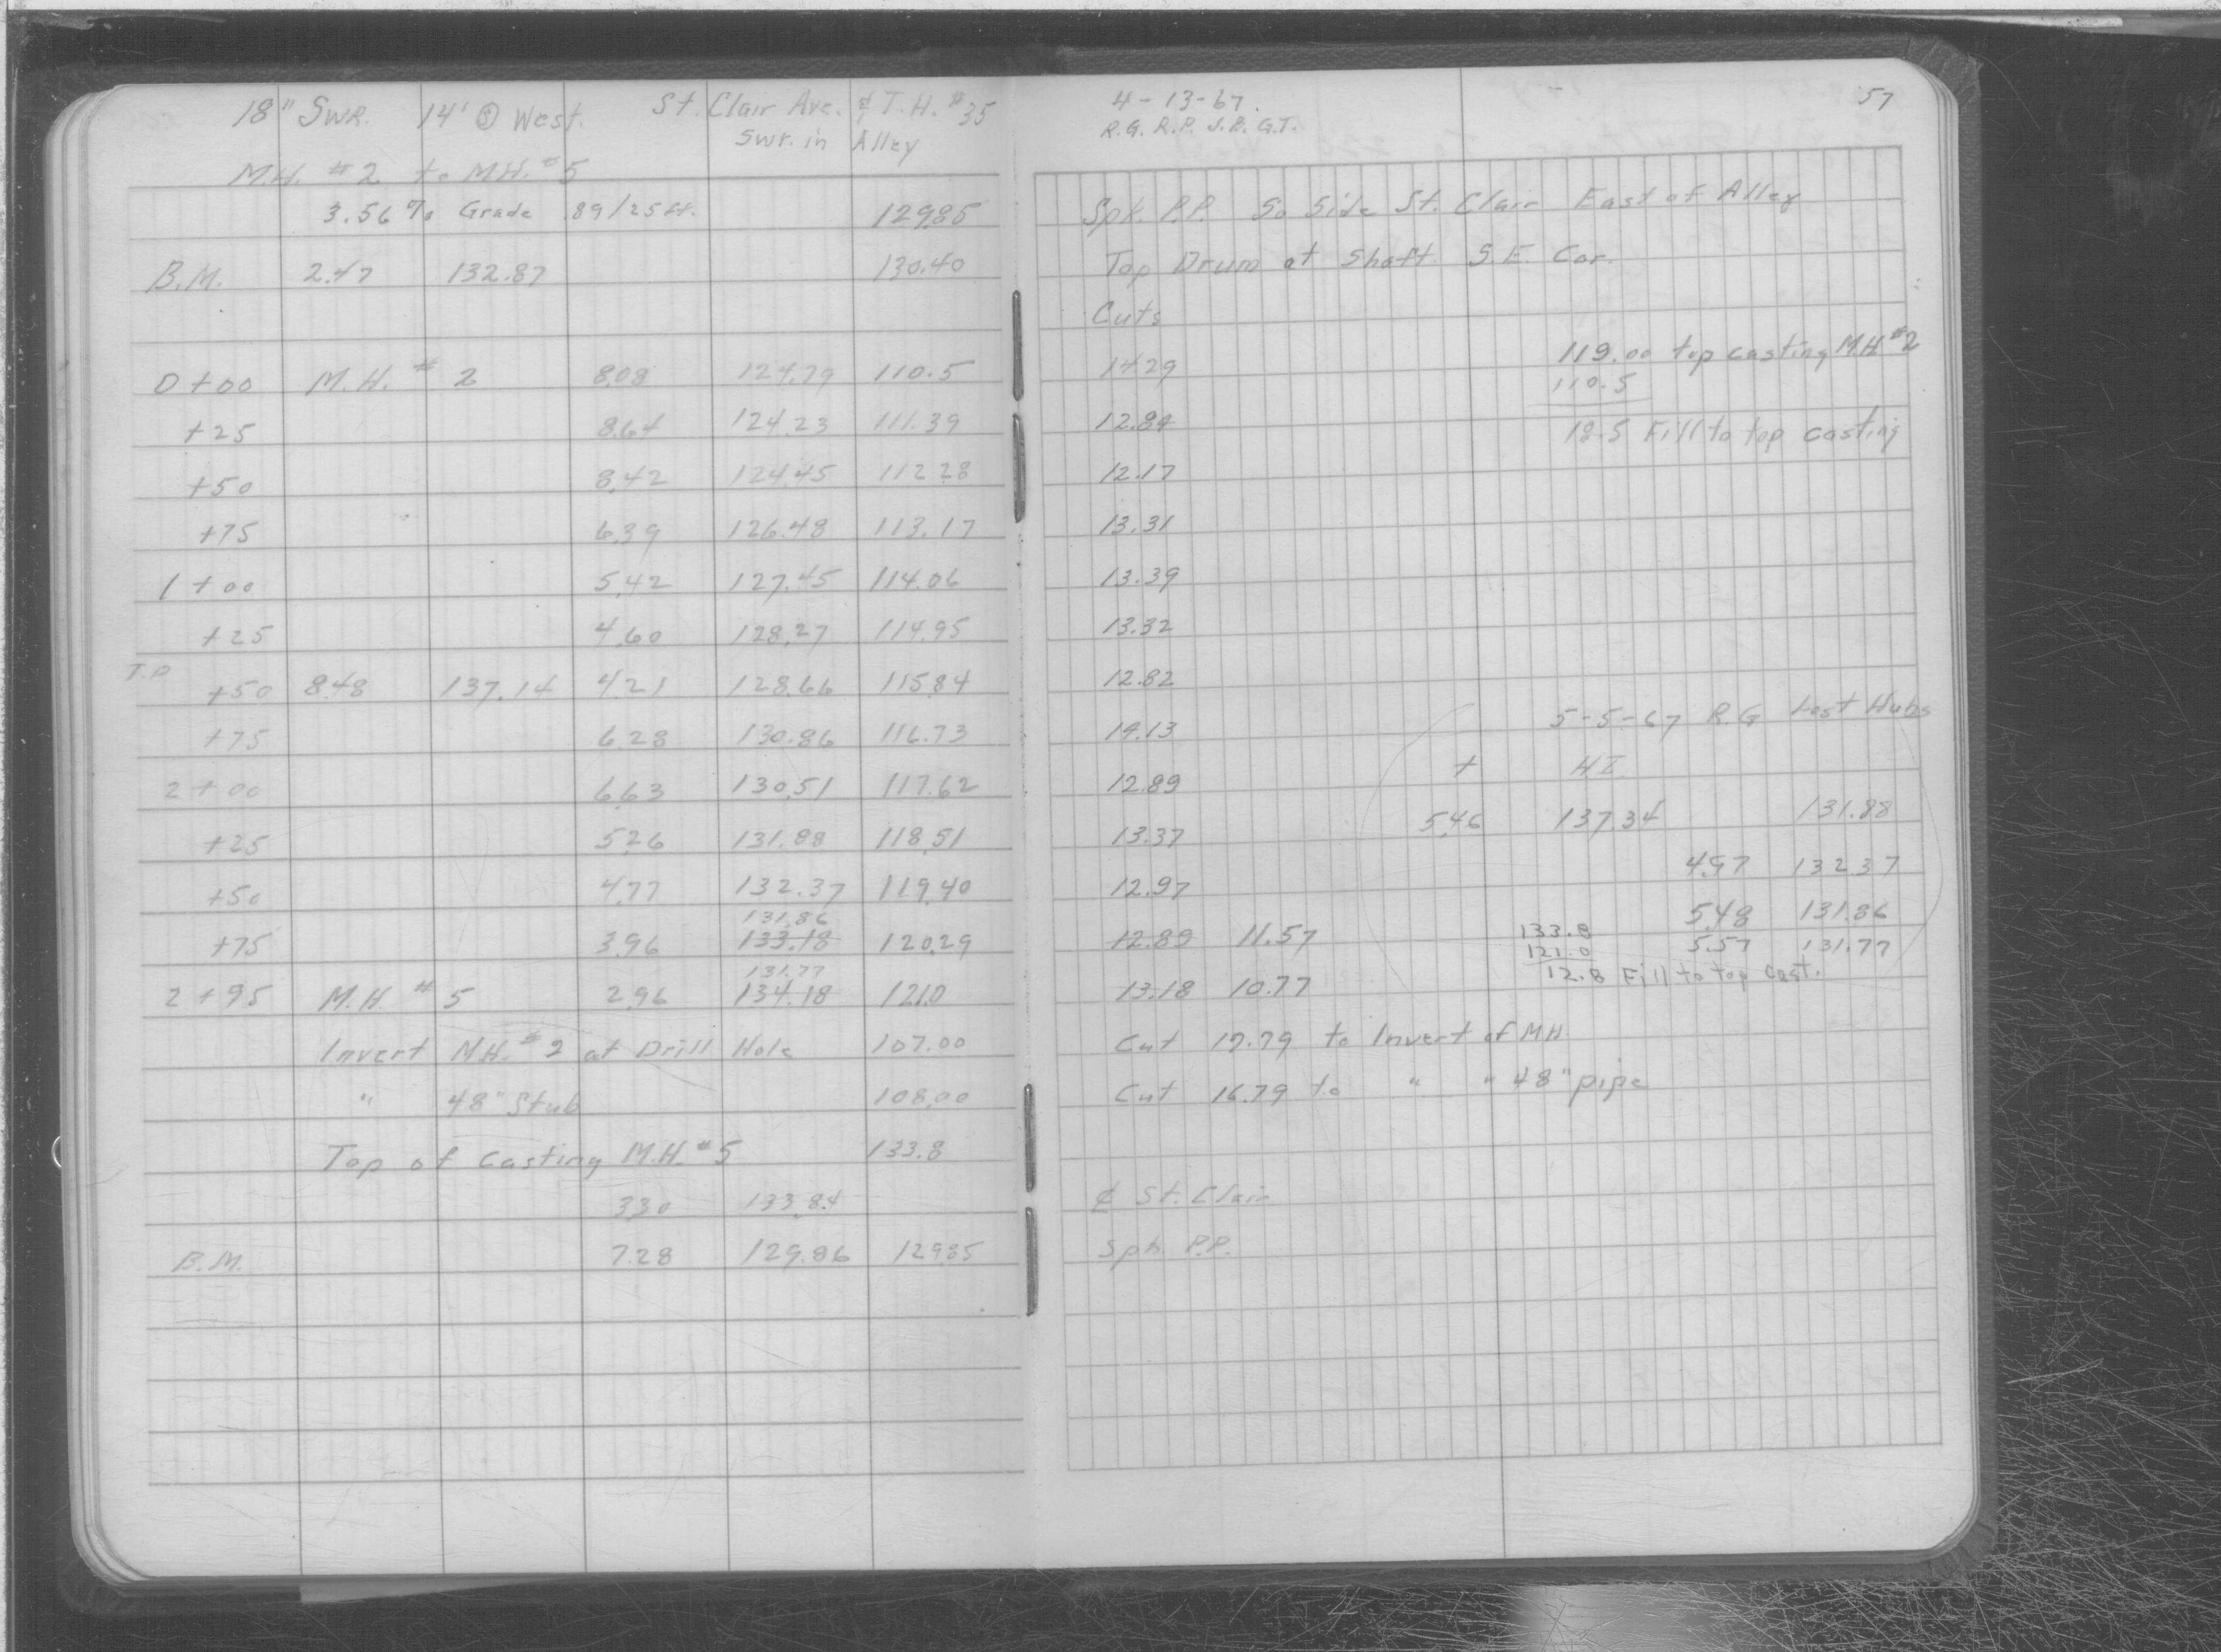 18" Swr. 14' @ West. St. Clair Ave. & T.H. #35
Swr. in Alley
M.H. #2 to M.H. #5
3.56% Grade .89/25 ft. 129.85
B.M. 2.47 132.87 130.40
0+00 M.H. #2 8.08 124.79 110.5
+25 8.64 124.23 111.39
+50 8.42 124.45 112.28
+75 6.39 126.48 113.17
1+00 5.42 127.45 114.06
+25 4.60 128.27 114.95
T.P. +50 8.48 137.14 4.21 128.66 115.84
+75 6.28 130.86 116.73
2+00 6.63 130.51 117.62
+25 5.26 131.88 118.51
+50 4.77 132.37 119.40
131.86
+75 3.96 133.18 120.29
131.77
2+95 M.H. #5 2.96 134.18 121.0
Invert M.H. #2 at Drill Hole 107.00
" 48" Stub 108.00
Top of Casting M.H. #5 133.8
3.30 133.84
B.M. 7.28 129.86 129.85
4-13-67. 57
R.G. R.P. J.B. G.T.
Spk. P.P. So Side St. Clair East of Alley
Top Drum at Shaft. S.E. Cor.
Cuts
14.29 119.00 top casting M.H. #2
110.5
12.84 18.5 Fill to top casting
12.17
13.31
13.39
13.32
12.82
14.13 5-5-67 R.G Lost Hubs
12.89 + HI
13.37 5.46 137.34 131.88
12.97 4.97 132.37
5.48 131.86
12.89 11.57 133.8 5.57 131.77
121.0
13.18 10.77 12.8 Fill to top Cast.
Cut 17.79 to Invert of MH
Cut 16.79 to " " 48" pipe
¢ St. Clair
Spk. P.P.